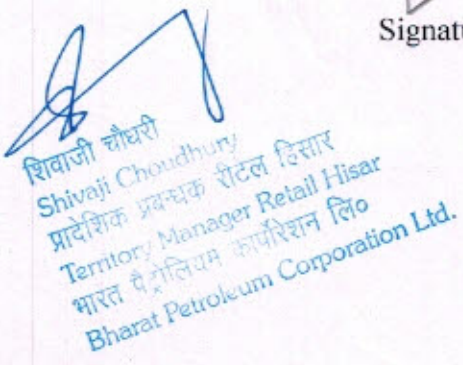 Signatu
शिवाजी चौधरी
Shivaji Choudhury
प्रादेशिक प्रबन्धक रीटेल हिसार
Territory Manager Retail Hisar
भारत पैट्रोलियम कार्पोरेशन लि०
Bharat Petroleum Corporation Ltd.